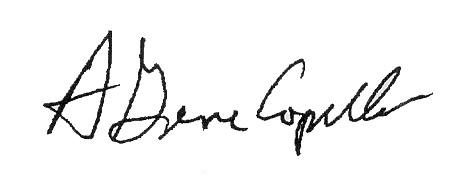 A Gene Copella